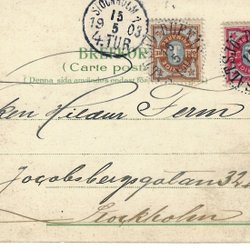 STOCKHOLM 2
15
19 5 03
4. TUR.
BREFKOR
(Carte post
(Denna sida användes endast för
ken Hildur Ferm
Jacobsbergsgatan 32
Stockholm